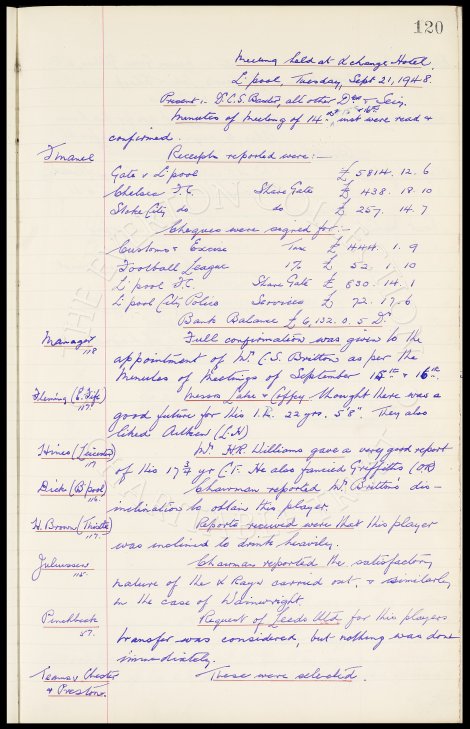 120
Meeting held at Xchange Hotel.
L'pool, Tuesday, Sept 21, 1948.
Present:- D.C.S. Baxter, all other Drs & Secy.
Minutes of Meeting of 14th, inst were read &
confirmed.
Finance Receipts reported were:-
Gate v L'pool £ 5814. 12. 6
Chelsea F.C. Share Gate £ 438. 18. 10
Stoke City do do £ 257. 14. 7
Cheques were signed for:-
Customs & Excise Tax £ 444. 1. 9
Football League 1% £ 52. 1. 10
L'pool F.C. Share Gate £ 830. 14. 1
L'pool City Police Services £ 72. 17. 6
Bank Balance £ 6,132. 0. 5 Dr.
Manager 118 Full confirmation was given to the
appointment of Mr C.S. Britton as per the
Minutes of Meetings of September 15th & 16th.
Fleming (E. Fife) 117 Messrs Lake & Coffey thought there was a
good future for this I.R. 22 yrs. 5'8". They also
liked Aitken (L.H)
Hines (Leicester) 117 Mr HR. Williams gave a very good report
of this 17 3/4 yr C.F. He also fancied Griffiths (OR)
Dick (B'pool) 116. Chairman reported Mr Britton's dis-
inclination to obtain this player.
H. Brown (Thistle) 117. Reports received were that this player
was inclined to drink heavily.
Juliussen 115. Chairman reported the satisfactory
nature of the X Rays carried out, & similarly
in the case of Wainwright.
Pinchbeck 57. Request of Leeds Utd. for this players
transfer was considered, but nothing was done
immediately.
Teams v Chester These were selected.
& Preston.
THE EVERTON COLLECTION